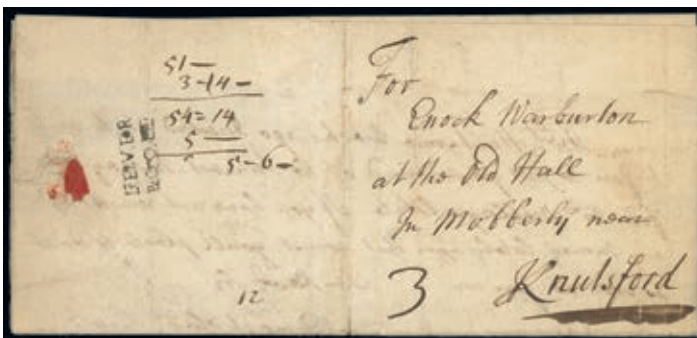 51 —
3 - 14 —
54 = 14
5 —
5 - 6 —
12
For
Enock Warburton
at the Old Hall
In Mobberly near
Knutsford
3